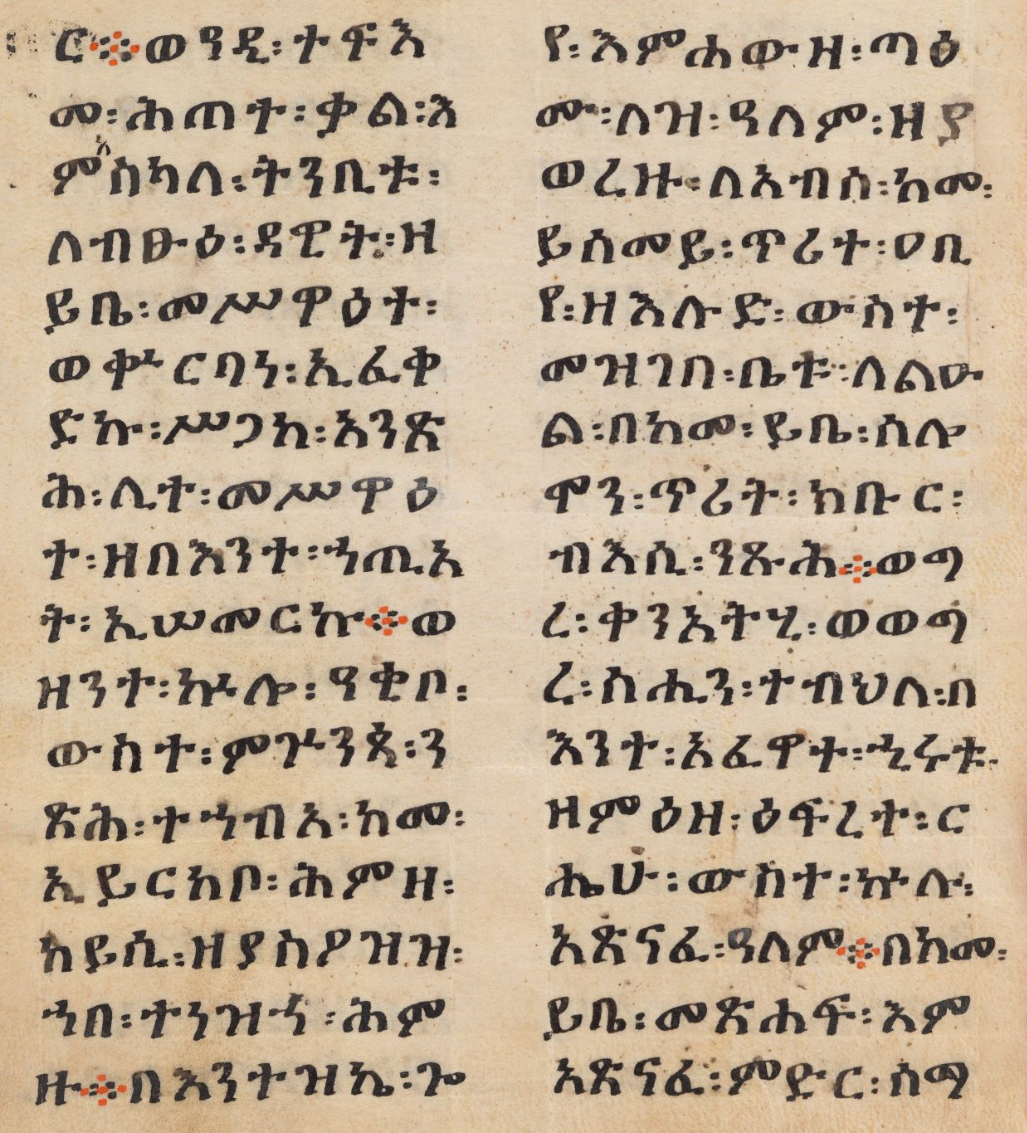 ር፨ወዓዲ፡ተፍእ
መ፡ሕጠተ፡ቃል፡እ
ምአስካለ፡ትንቢቱ፡
ለብፁዕ፡ዳዊት፡ዘ
ይቤ፡መሥዋዕተ፡
ወቍርባነ፡ኢፈቀ
ድኩ፡ሥጋከ፡አንጽ
ሕ፡ሊተ፡መሥዋዕ
ተ፡ዘበእንተ፡ኀጢአ
ት፡ኢሠመርኩ፨ወ
ዘንተ፡ኵሎ፡ዓቂቦ፡
ውስተ፡ምጕንጳ፡ን
ጽሕ፡ተኀብአ፡ከመ፡
ኢይርከቦ፡ሕምዘ፡
ከይሲ፡ዘያስዖዝዝ፡
ኀበ፡ተነዝኀ፡ሕም
ዙ፨በእንተዝኬ፡ጐ
የ፡እምሐውዘ፡ጣዕ
ሙ፡ለዝ፡ዓለም፡ዘያ
ወረዙ፡ለአብሰ፡ከመ፡
ይሰመይ፡ጥሪተ፡ዐቢ
የ፡ዘእሉድ፡ውስተ፡
መዝገበ፡ቤቱ፡ለልዑ
ል፡በከመ፡ይቤ፡ሰሎ
ሞን፡ጥሪት፡ክቡር፡
ብእሲ፡ንጹሕ፨ወግ
ረ፡ቀንአትሂ፡ወወግ
ረ፡ስሒን፡ተብህለ፡በ
እንተ፡አፈዋተ፡ኂሩቱ፡
ዘምዕዘ፡ዕፍረተ፡ር
ሔሁ፡ውስተ፡ኵሉ፡
አጽናፈ፡ዓለም፨በከመ፡
ይቤ፡መጽሐፍ፡እም
አጽናፈ፡ምድር፡ሰማ